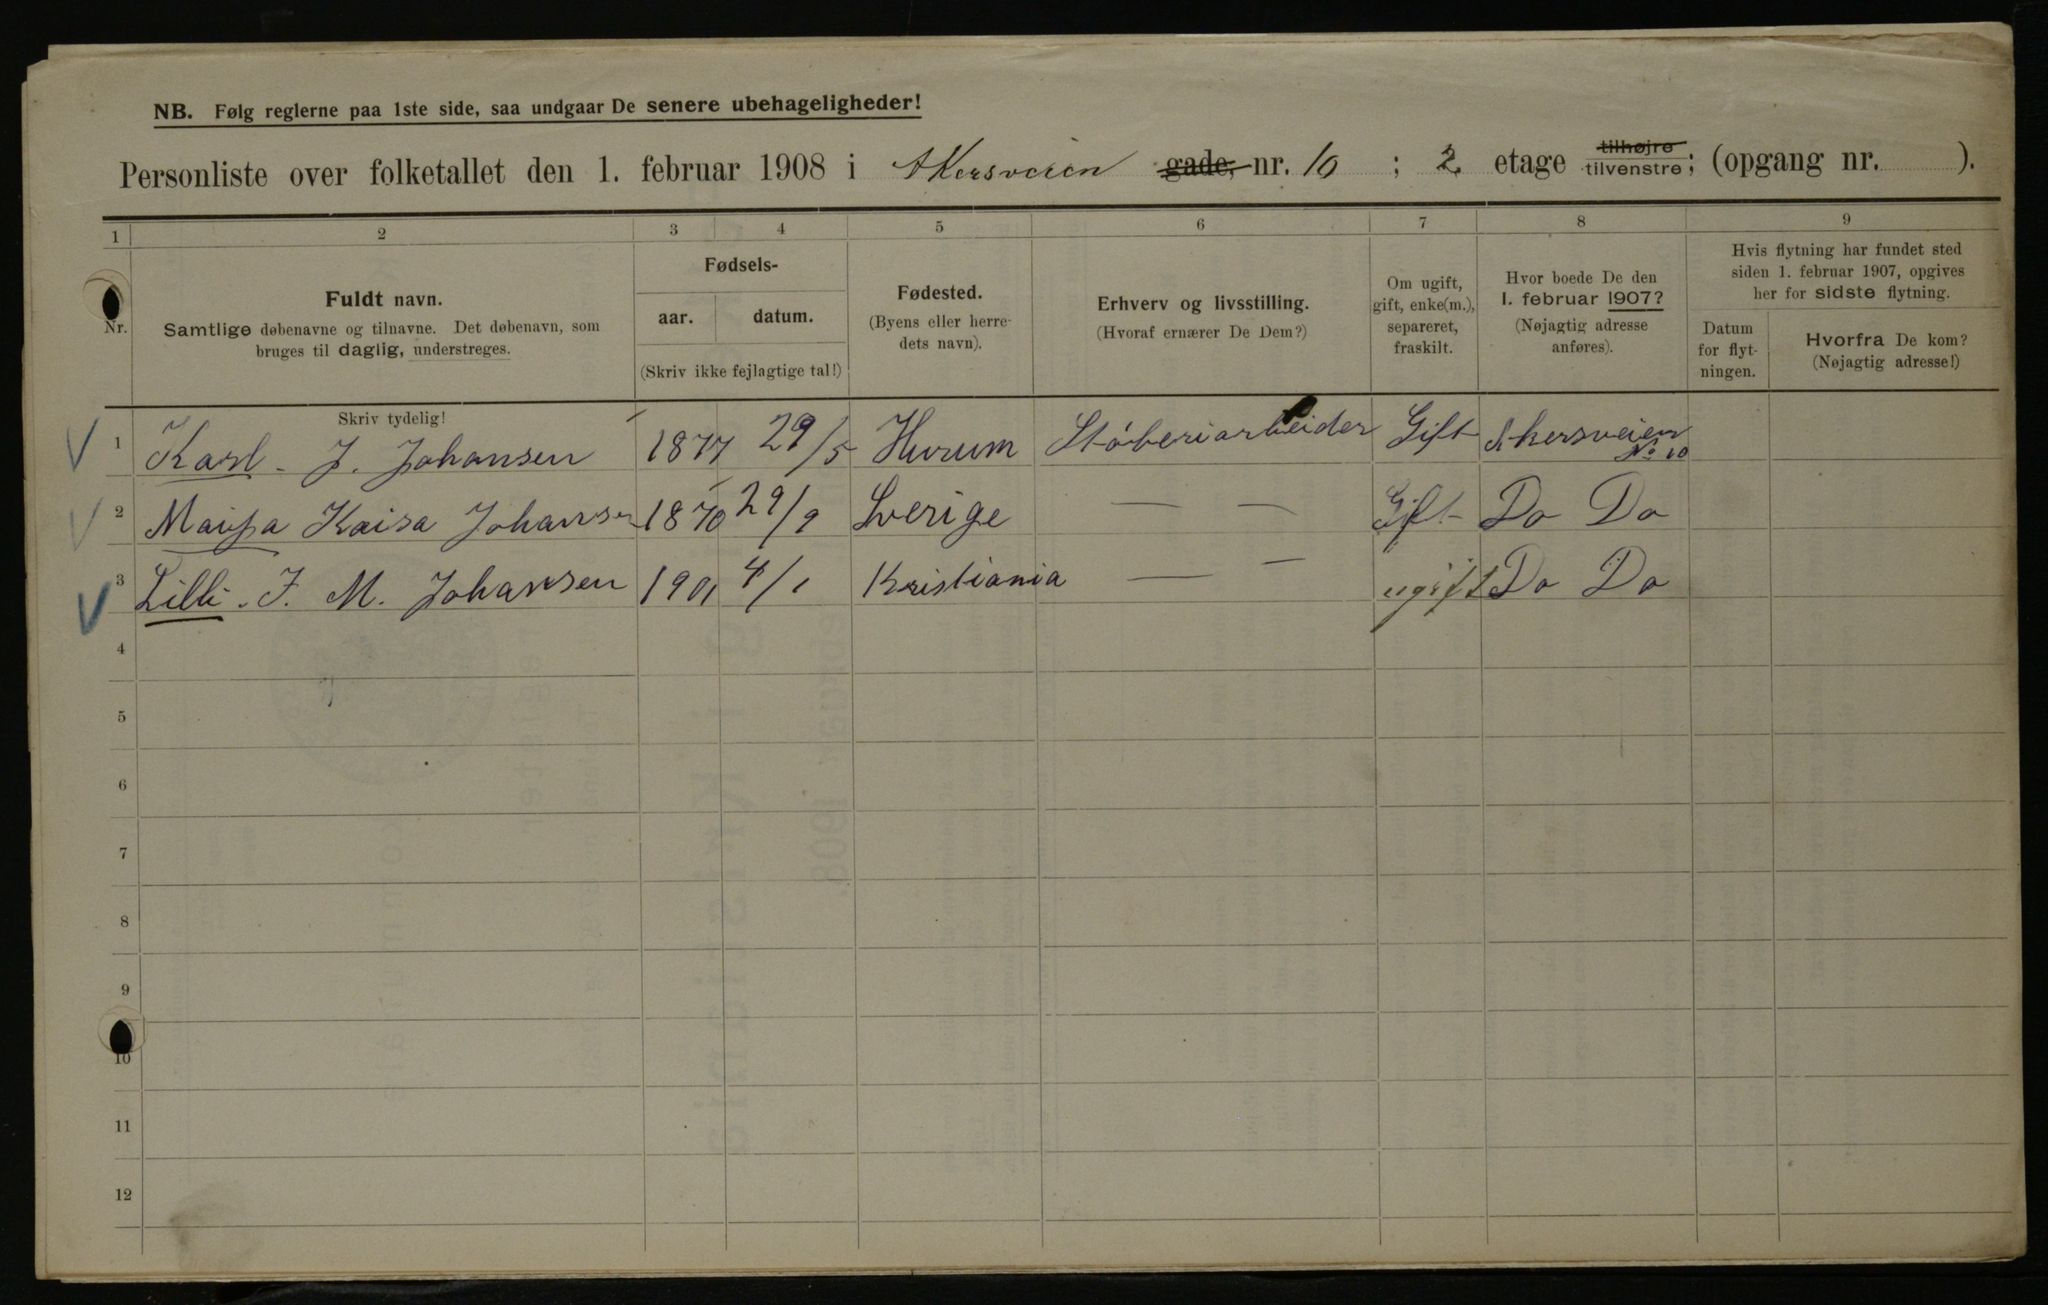 NB. Følg reglerne paa 1ste side, saa undgaar De senere ubehageligheder!
Personliste over folketallet den 1. februar 1908 i Akersveien gade, nr. 10 ; 2 etage tilhøjre tilvenstre; (opgang nr. ).
1 2 3 4 5 6 7 8 9
Nr.
Fuldt navn.
Samtlige døbenavne og tilnavne. Det døbenavn, som
bruges til daglig, understreges.
Fødsels-
aar. datum.
(Skriv ikke fejlagtige tal!)
Fødested.
(Byens eller herre-
dets navn).
Erhverv og livsstilling.
(Hvoraf ernærer De Dem?)
Om ugift,
gift, enke(m.),
separeret,
fraskilt.
Hvor boede De den
1. februar 1907?
(Nøjagtig adresse
anføres).
Hvis flytning har fundet sted
siden 1. februar 1907, opgives
her for sidste flytning.
Datum
for flyt-
ningen.
Hvorfra De kom?
(Nøjagtig adresse!)
Skriv tydelig!
1 Karl. J. Johansen 1877 29/5 Hurum Stöberiarbeider Gift Akersveien
No 10
2 Kaisa Johansen 1870 29/9 Sverige — — Gift Do Do
3 Lilli. J. M. Johansen 1901 4/1 Kristiania — — ugift Do Do
4
5
6
7
8
9
10
11
12